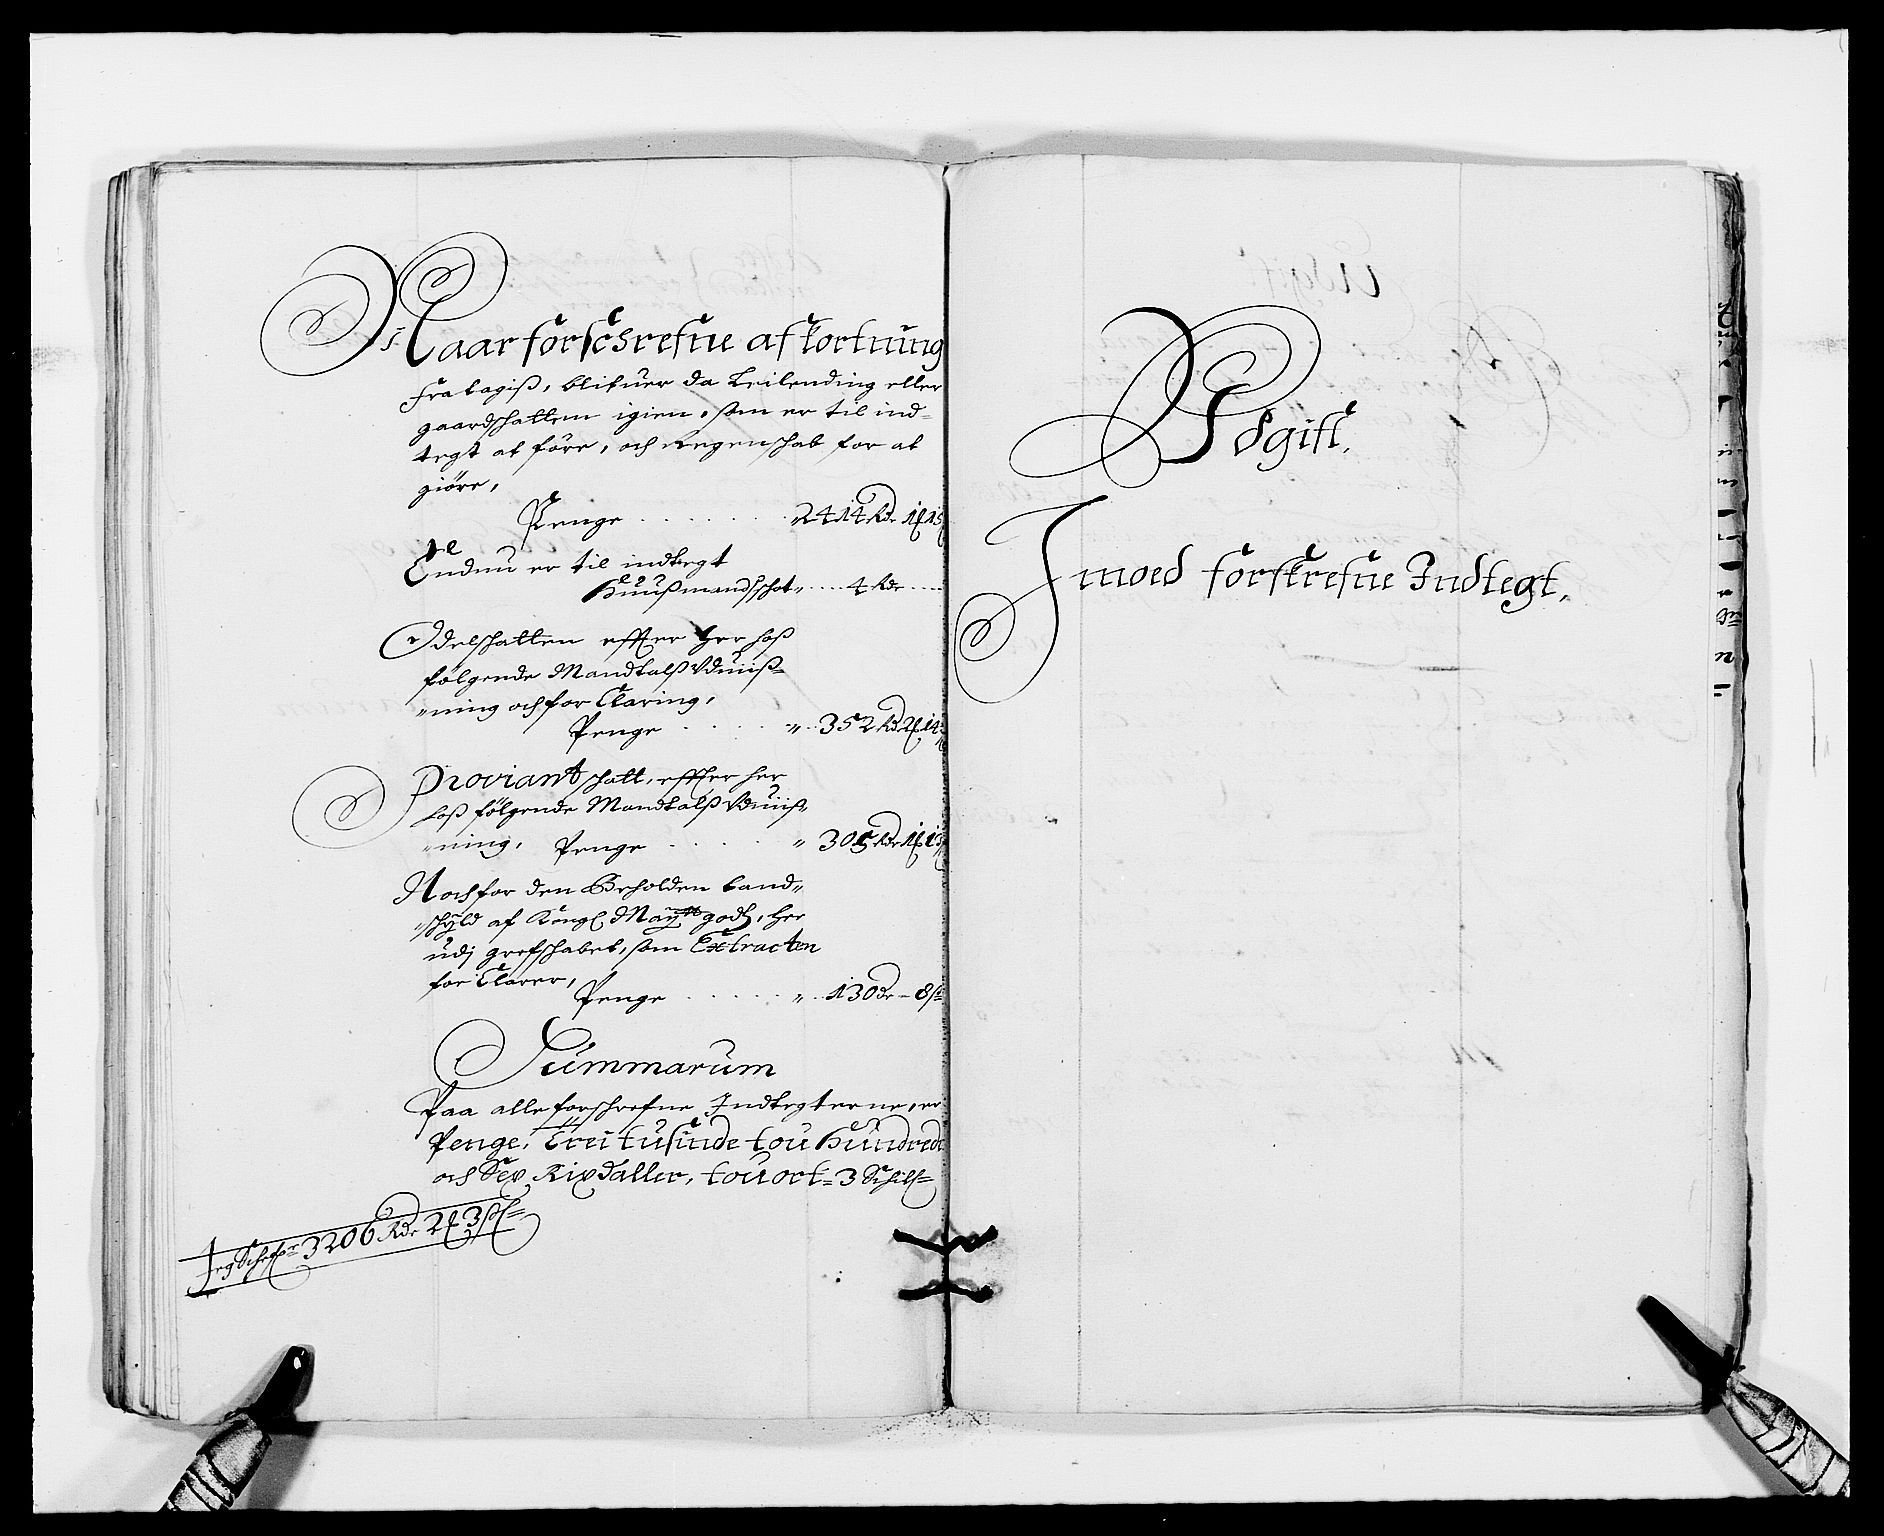 Naar forschrefne afkortning
fra tagiß, blifuer da Leilending eller
gaardschatten igien, som er til ind-
tegt at före, och Regenschab for at
giöre,
Penge 2414 Rdr 1
Endnu er til indtegt
Huußmandschat 4 Rdr
Odelschatten effter her hoß
fölgende Mandtalß Vduiiß-
ning och forClaring,
Penge 352 Rdr 2
Proviantschatt, effter her
hoß fölgende Mandtalß Vduiiß-
ning, Penge 305 Rdr 1
Noch for den Beholden Land-
schyld af Kongl Maytt godtz, her
udj grefschabet, som Extracten
forClarer,
Penge 130 dr - 8 s
Summarum
Paa alle forschrefne Indtegterne, er
Penge, Trei tusinde tou Hundrede
och Sex Rixdaller, tou ort - 3 Schill
3206 Rdr 2 3
Vdgift,
Imoed forskrefne Indtegt,